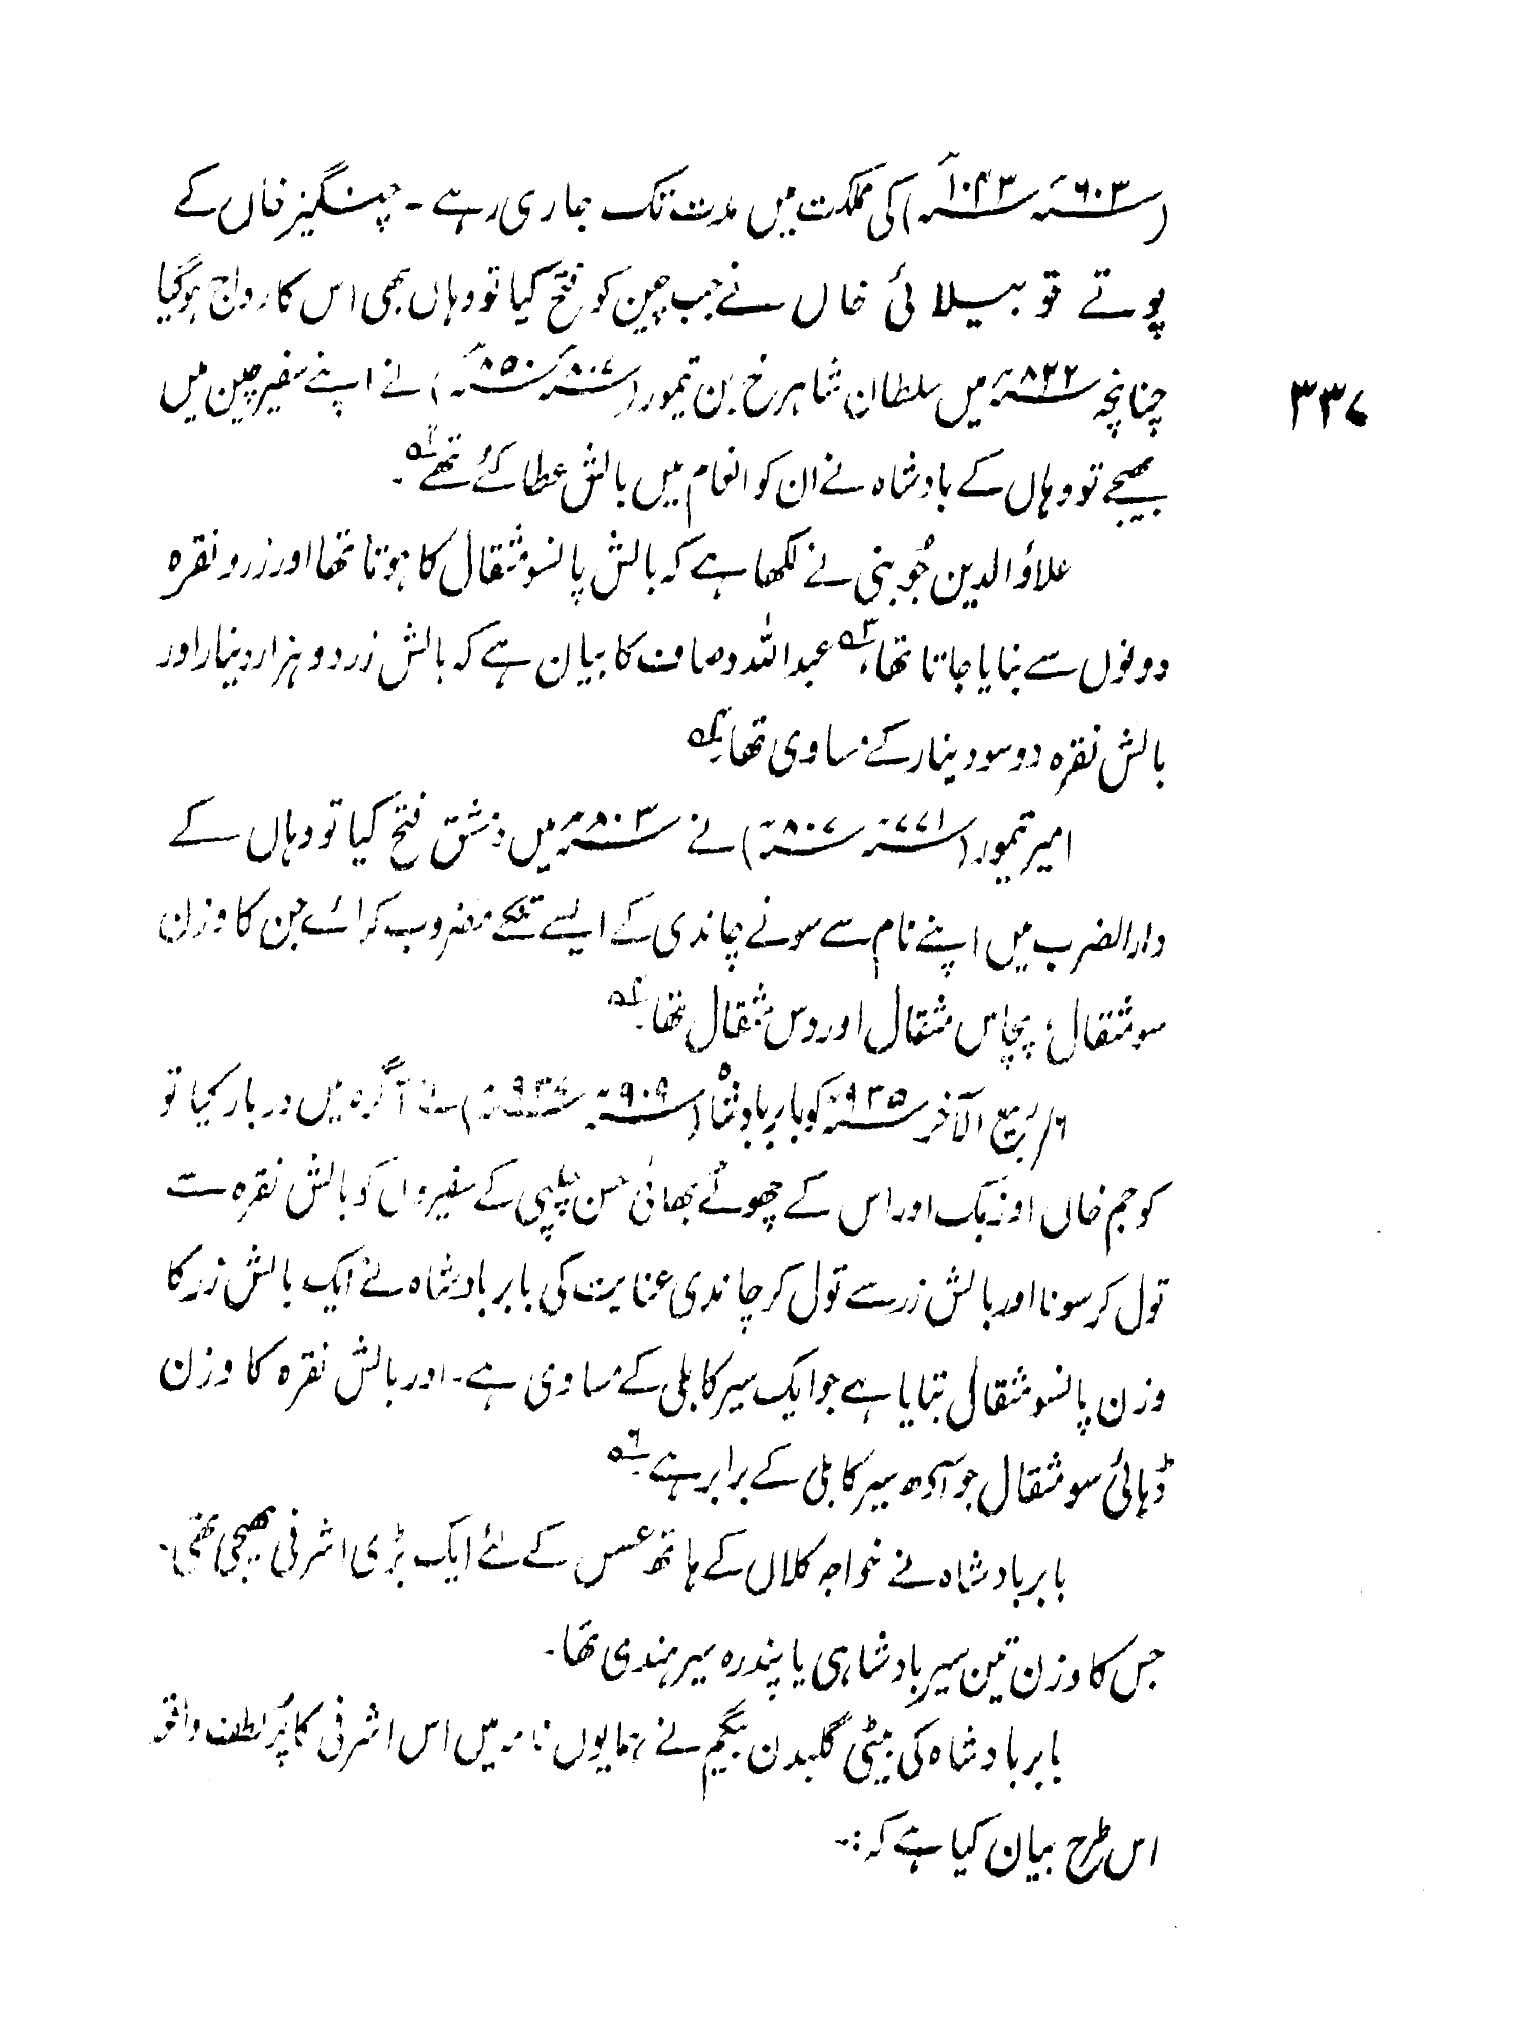 (۶۰۳ھ ۱۰۴۳ھ) کی مملکت میں مدت تک جاری رہے ۔ چنگیز خاں کے
پوتے قوبیلائی خاں نے جب چین کو فتح کیا تو وہاں بھی اس کا رواج ہوگیا
چنانچہ ۸۲۲ھ میں سلطان شاہرخ بن تیمور (۸۰۷ھ ۸۵۰ھ) نے اپنے سفیر چین میں
۳۳۷
بھیجے تو وہاں کے بادشاہ نے ان کو انعام میں بالش عطا کئے تھے ۔
علاؤالدین جُوینی نے لکھا ہے کہ بالش پانسو مثقال کا ہوتا تھا اور زر و نقرہ
دونوں سے بنایا جاتا تھا،۳؎ عبداللہ وصاف کا بیان ہے کہ بالش زر دو ہزار دینار اور
بالش نقرہ دو سو دینار کے مساوی تھا۔۴؎
امیر تیمور (۷۷۱ھ ۸۰۷ھ) نے ۸۰۳ھ میں دمشق فتح کیا تو وہاں کے
دارالضرب میں اپنے نام سے سونے چاندی کے ایسے تنکے مضروب کرائے جن کا وزن
سو مثقال، پچاس مثقال اور دس مثقال تھا۔۵؎
۶/ ربیع الآخر ۹۳۵ھ کو بابر بادشاہ (۹۰۹ھ ۹۳۷ھ) نے آگرہ میں دربار کیا تو
کوجم خاں اوزبک اور اس کے چھوٹے بھائی حسن چلپی کے سفیروں کو بالش نقرہ سے
تول کر سونا اور بالش زر سے تول کر چاندی عنایت کی بابر بادشاہ نے ایک بالش زر کا
وزن پانسو مثقال بتایا ہے جو ایک سیر کابلی کے مساوی ہے۔ اور بالش نقرہ کا وزن
ڈہائی سو مثقال جو آدھ سیر کابلی کے برابر ہے۔۶؎
بابر بادشاہ نے خواجہ کلاں کے ہاتھ عسس کے لئے ایک بڑی اشرفی بھیجی تھی۔
جس کا وزن تین سیر بادشاہی یا پندرہ سیر ہندی تھا۔
بابر بادشاہ کی بیٹی گلبدن بیگم نے ہمایوں نامہ میں اس اشرفی کا پُر لطف واقعہ
اس طرح بیان کیا ہے کہ :۔